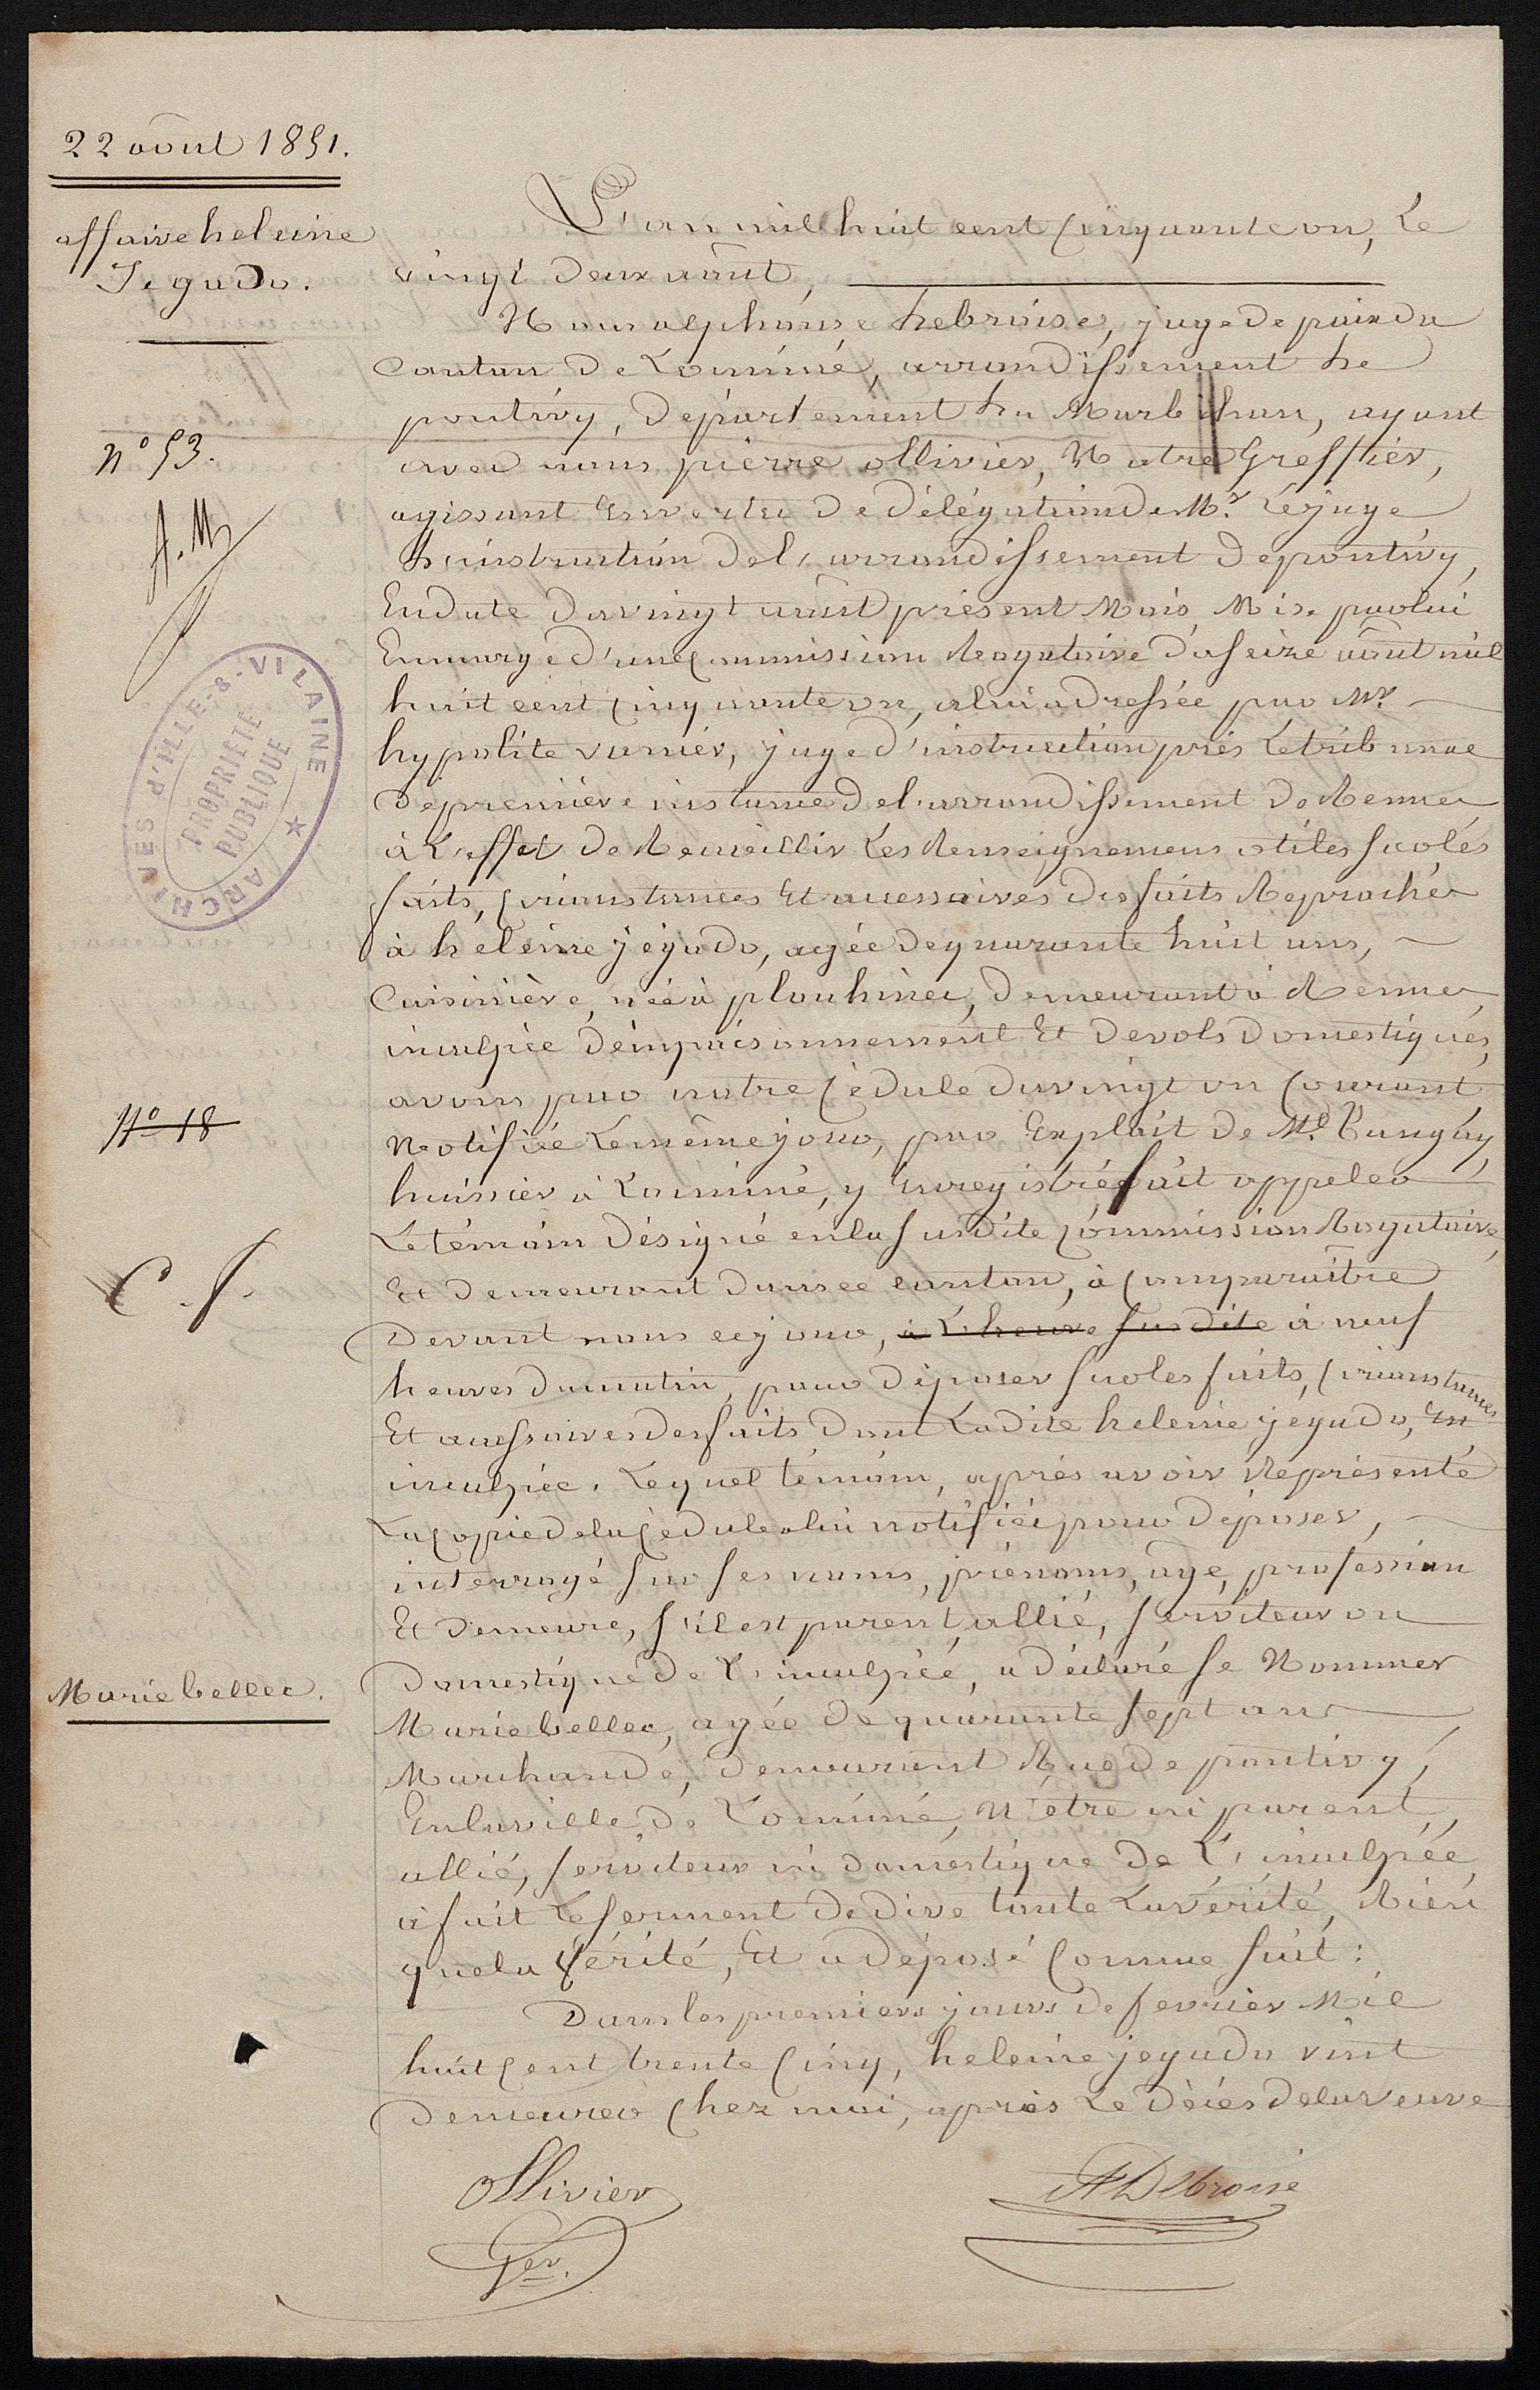 22 août 1851.
affaire heleine
Jegado.
n° 53.
A. M
ARCHIVES d'ILLE-&-VILAINE
PROPRIÉTÉ
PUBLIQUE
N° 18
C. f.
Marie bellec.
L'an mil huit cent cinquante un, Le
vingt deux août,
Nous alphonse debroise, juge de paix du
Canton de Locminé, arrondissement de
pontivy, département du Morbihan, ayant
avec nous pierre ollivier, Notre Greffier,
agissant En vertu De délégation de Mr. Le juge
d'instruction de l'arrondissement de pontivy,
En date du vingt août présent Mois, Mise par lui
En marge d'une Commission Rogatoire du seize août mil
huit cent cinquante un, à lui adressée par Mr.
hypolite vannier, juge d'instruction près Le tribunal
de première instance de l'arrondissement de Rennes
à L'effet de Recueillir Les Renseignemens utiles sur les
faits, circonstances Et accessoires des faits Reprochés
à héleine jégado, agée de quarante huit ans,
Cuisinière, née à plouhinec, demeurant à Rennes,
inculpée d'empoisonnement Et de vols Domestiques,
avons par notre Cédule du vingt un Courant
Notifiée Le même jour, par Exploit de Me.
huissier à Locminé, y Enregistré fait appeler
Le témoin désigné en la susdite Commission Rogatoire,
Et demeurant dans ce canton, à Comparaître
Devant nous ce jour, à L'heure susdite à neuf
heures du matin, pour déposer sur les faits, circonstances
Et accessoires des faits dont Ladite heleine jégado, Est
inculpée. Lequel témoin, après avoir Représenté
La Copie de la Cédule à lui notifiée pour déposer,
interrogé sur ses noms, prénoms, age, profession
Et demeure, s'il est parent, allié, serviteur ou
Domestique de L'inculpée, a déclaré se Nommer
Marie bellec, agée de quarante sept ans
Marchande, demeurant Rue de pontivy,
En la ville de Locminé, N'être ni parent,
allié, serviteur ni domestique de L'inculpée,
a fait Le serment de dire toute La vérité, Rien
que la Vérité, Et a déposé Comme suit :
Dans les premiers jours de fevrier Mil
huit Cent trente Cinq, heleine jegado vint
Demeurer Chez moi, après Le décès de la veuve
Ollivier
Ger.
A Debroise